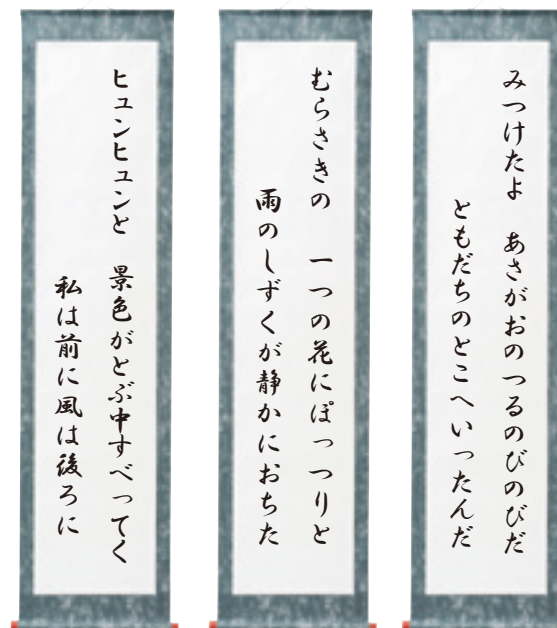 みつけたよ　あさがおのつるのびのびだ
ともだちのとこへいったんだ
むらさきの　一つの花にぽっつりと
雨のしずくが静かにおちた
ヒュンヒュンと　景色がとぶ中すべってく
私は前に風は後ろに